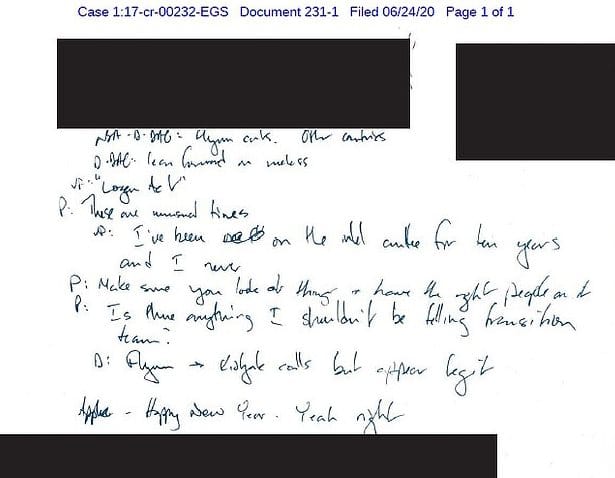 Case 1:17-cr-00232-EGS   Document 231-1   Filed 06/24/20   Page 1 of 1
NSA-D-DAG: Flynn cuts. Other countries
D-DAG: lean forward on unclass
VP: "Logan Act"
P: These are unusual times
VP: I've been on the intel cmttee for ten years
and I never
P: Make sure you look at things + have the right people on it
P: Is there anything I shouldn't be telling transition
team?
D: Flynn → Kislyak calls but appear legit
Happy New Year. Yeah right